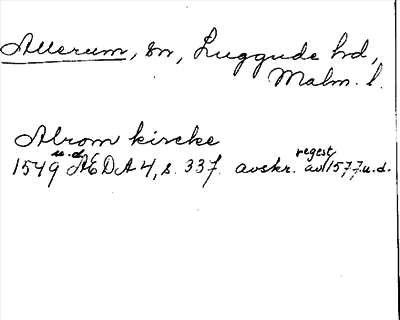 Allerum, sn, Luggude hd,
Malm. l.
Alrom kircke
1549 u.d. ÆDA 4, s. 337. avskr. av regest 1577, u.d.